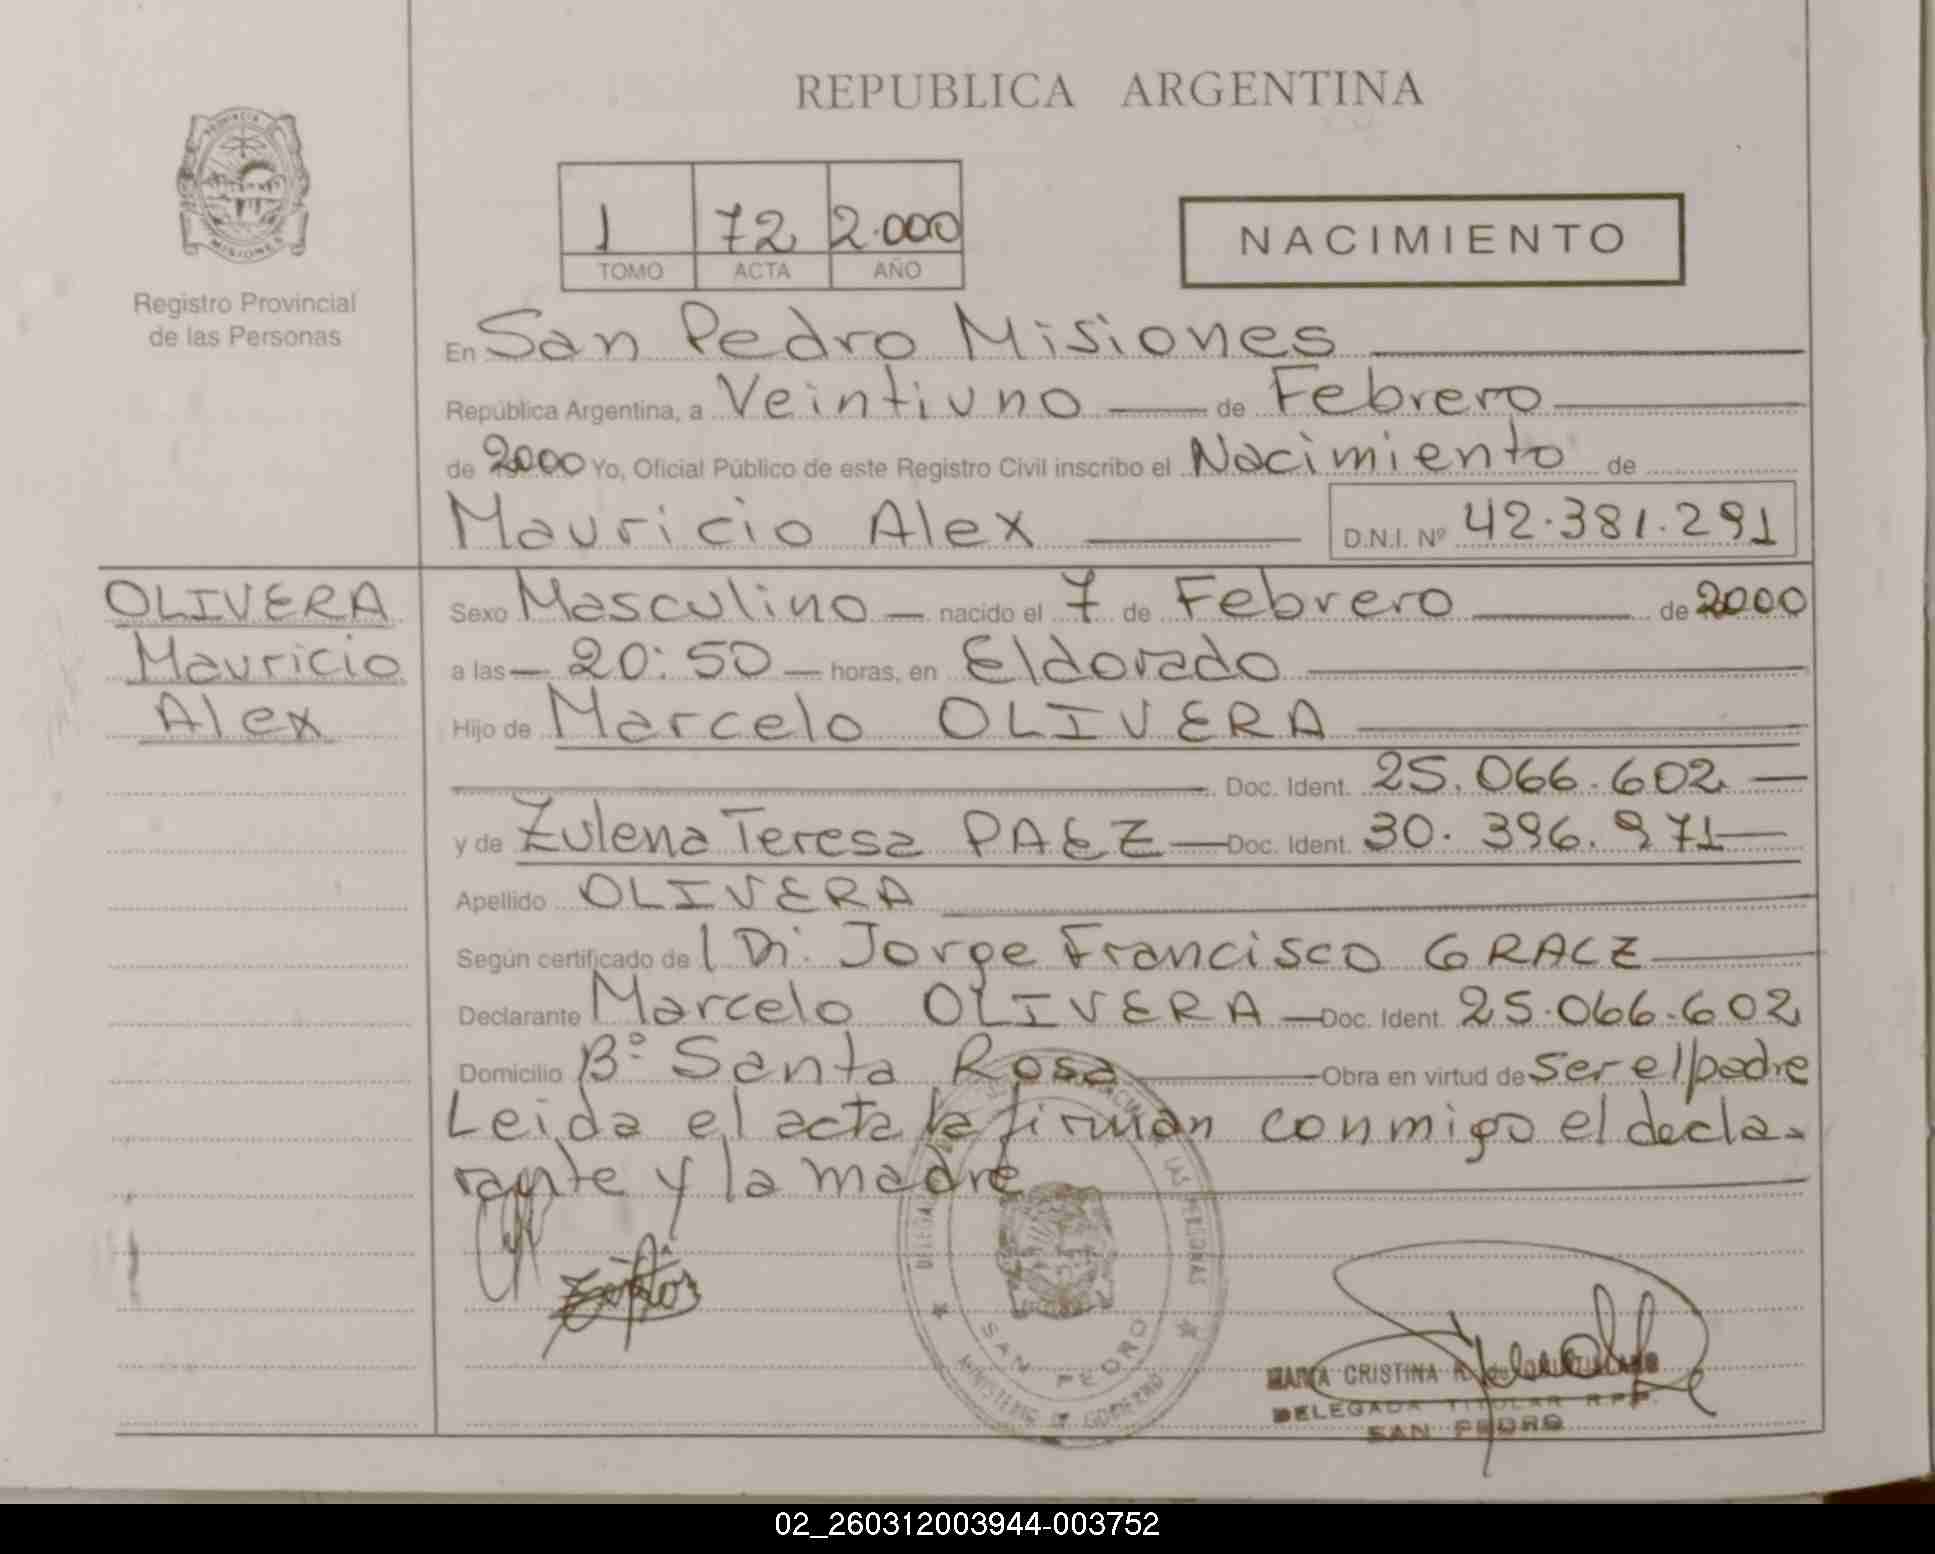 REPUBLICA ARGENTINA
PROVINCIA DE
MISIONES
Registro Provincial
de las Personas
1 72 2.000
TOMO ACTA AÑO
NACIMIENTO
En San Pedro Misiones
República Argentina, a Veintiuno de Febrero
de 2000 Yo, Oficial Público de este Registro Civil inscribo el Nacimiento de
Mauricio Alex D.N.I. Nº 42.381.291
OLIVERA
Mauricio
Alex
Sexo Masculino nacido el 7 de Febrero de 2000
a las 20:50 horas, en Eldorado
Hijo de Marcelo OLIVERA
Doc. Ident. 25.066.602
y de Zulena Teresa PAEZ Doc. Ident. 30.396.971
Apellido OLIVERA
Según certificado de l Dr. Jorge Francisco GRACZ
Declarante Marcelo OLIVERA Doc. Ident. 25.066.602
Domicilio Bº Santa Rosa Obra en virtud de ser el padre
Leida el acta la firman conmigo el decla-
rante y la madre
LAS PERSONAS
SAN PEDRO
MINISTERIO DE GOBIERNO
MARIA CRISTINA
DELEGADA TITULAR R.P.P.
SAN PEDRO
02_260312003944-003752